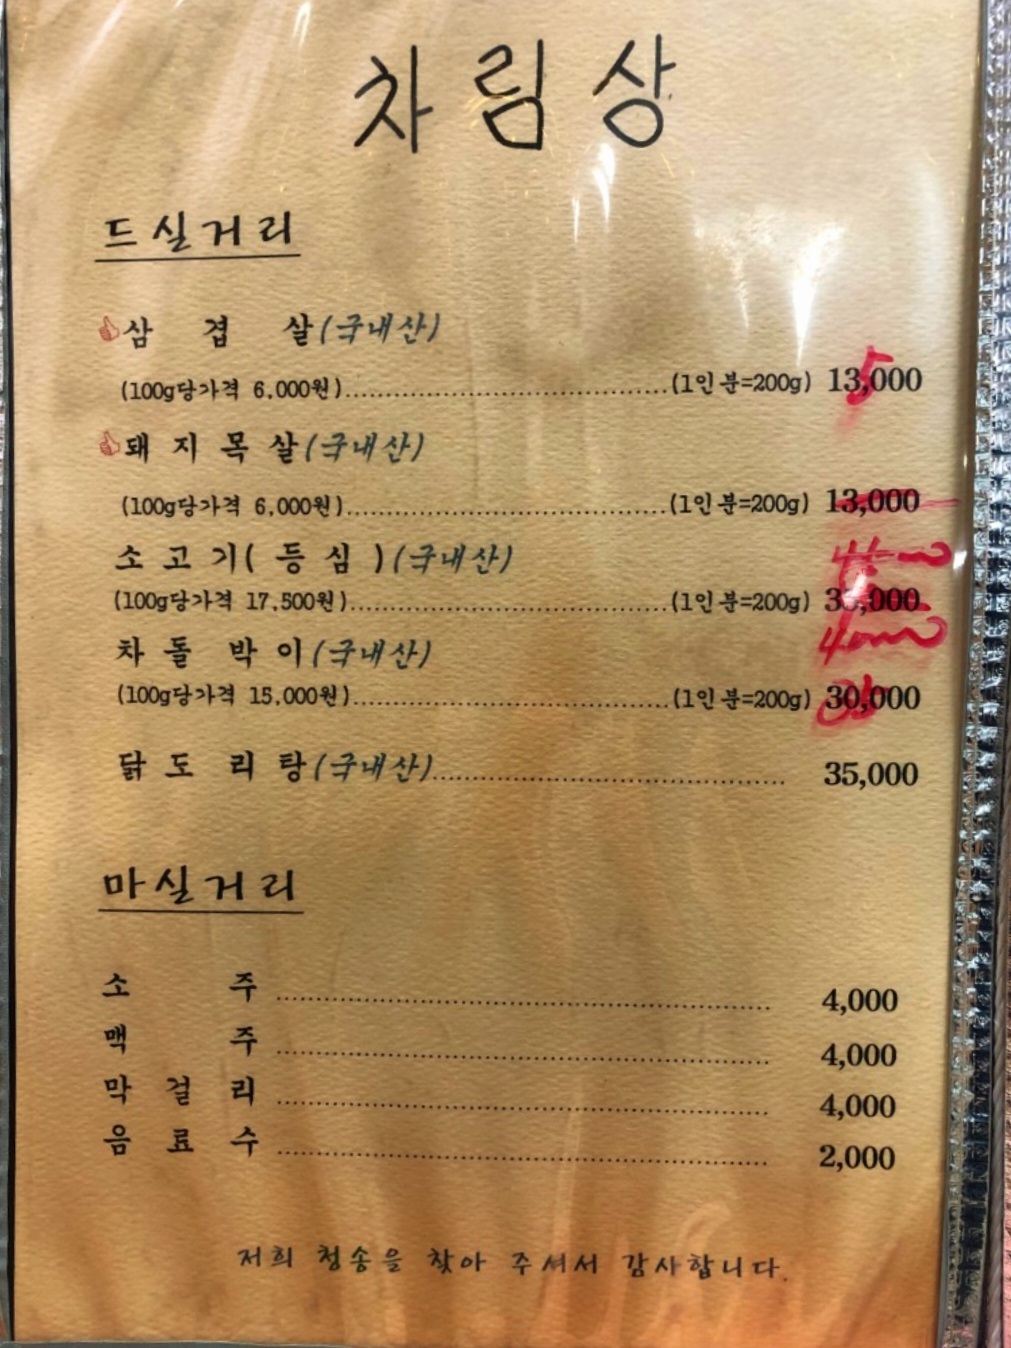 차림상
드실거리
삼 겹 살(국내산)
(100g당가격 6,000원)........................................(1인분=200g) 13,000
5
돼 지 목 살(국내산)
(100g당가격 6,000원)........................................(1인분=200g) 13,000
소 고 기( 등 심 )(국내산)
(100g당가격 17,500원)........................................(1인분=200g) 35,000
차 돌 박 이(국내산)
(100g당가격 15,000원)........................................(1인분=200g) 30,000
닭 도 리 탕(국내산)........................................ 35,000
마실거리
소 주 ........................................ 4,000
맥 주 ........................................ 4,000
막 걸 리 ........................................ 4,000
음 료 수 ........................................ 2,000
저희 청송을 찾아 주셔서 감사합니다.